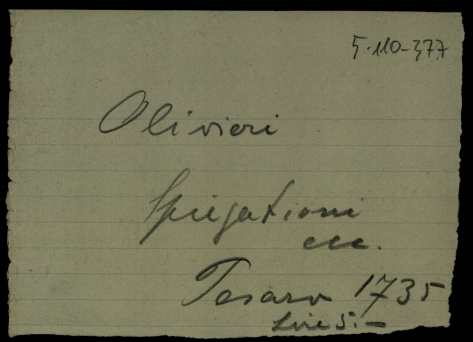 5-110-377
Olivieri
Spiegationi
ecc.
Pesaro 1735
Lire 5.-